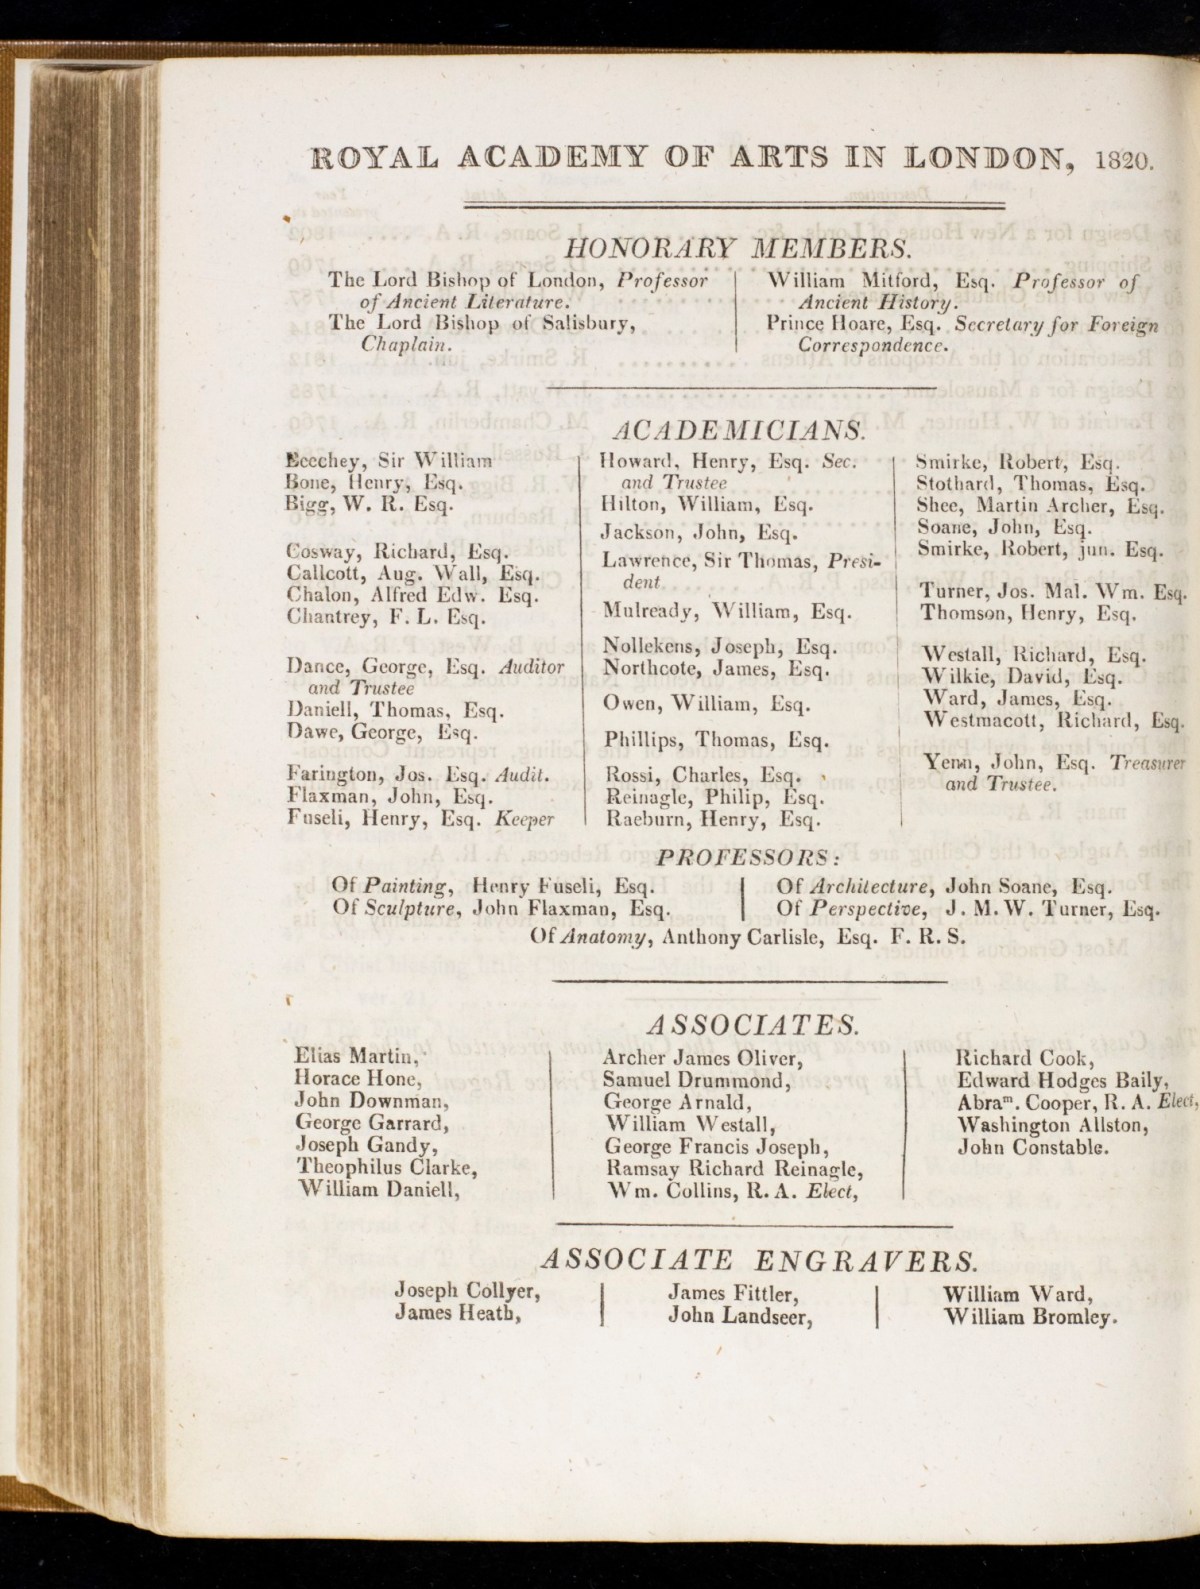 ROYAL ACADEMY OF ARTS IN LONDON, 1820.
HONORARY MEMBERS.
The Lord Bishop of London, Professor
of Ancient Literature.
The Lord Bishop of Salisbury,
Chaplain.
William Mitford, Esq. Professor of
Ancient History.
Prince Hoare, Esq. Secretary for Foreign
Correspondence.
ACADEMICIANS.
Beechey, Sir William
Bone, Henry, Esq.
Bigg, W. R. Esq.
Cosway, Richard, Esq.
Callcott, Aug. Wall, Esq.
Chalon, Alfred Edw. Esq.
Chantrey, F. L. Esq.
Dance, George, Esq. Auditor
and Trustee
Daniell, Thomas, Esq.
Dawe, George, Esq.
Farington, Jos. Esq. Audit.
Flaxman, John, Esq.
Fuseli, Henry, Esq. Keeper
Howard, Henry, Esq. Sec.
and Trustee
Hilton, William, Esq.
Jackson, John, Esq.
Lawrence, Sir Thomas, Presi-
dent
Mulready, William, Esq.
Nollekens, Joseph, Esq.
Northcote, James, Esq.
Owen, William, Esq.
Phillips, Thomas, Esq.
Rossi, Charles, Esq.
Reinagle, Philip, Esq.
Raeburn, Henry, Esq.
Smirke, Robert, Esq.
Stothard, Thomas, Esq.
Shee, Martin Archer, Esq.
Soane, John, Esq.
Smirke, Robert, jun. Esq.
Turner, Jos. Mal. Wm. Esq.
Thomson, Henry, Esq.
Westall, Richard, Esq.
Wilkie, David, Esq.
Ward, James, Esq.
Westmacott, Richard, Esq.
Yenn, John, Esq. Treasurer
and Trustee.
PROFESSORS:
Of Painting, Henry Fuseli, Esq.
Of Sculpture, John Flaxman, Esq.
Of Architecture, John Soane, Esq.
Of Perspective, J. M. W. Turner, Esq.
Of Anatomy, Anthony Carlisle, Esq. F. R. S.
ASSOCIATES.
Elias Martin,
Horace Hone,
John Downman,
George Garrard,
Joseph Gandy,
Theophilus Clarke,
William Daniell,
Archer James Oliver,
Samuel Drummond,
George Arnald,
William Westall,
George Francis Joseph,
Ramsay Richard Reinagle,
Wm. Collins, R. A. Elect,
Richard Cook,
Edward Hodges Baily,
Abraᵐ. Cooper, R. A. Elect,
Washington Allston,
John Constable.
ASSOCIATE ENGRAVERS.
Joseph Collyer,
James Heath,
James Fittler,
John Landseer,
William Ward,
William Bromley.